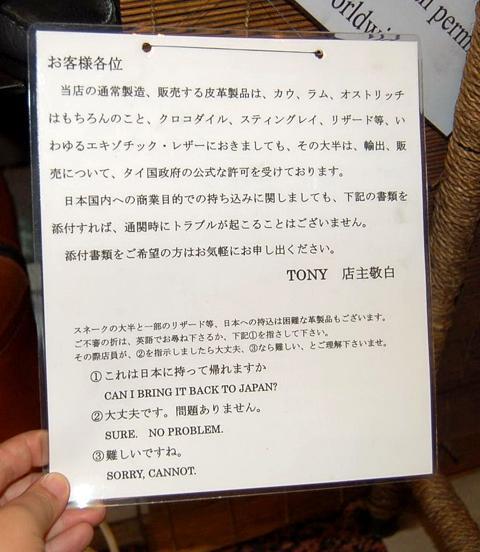 orldwi
n perm
お客様各位
当店の通常製造、販売する皮革製品は、カウ、ラム、オストリッチ
はもちろんのこと、クロコダイル、スティングレイ、リザード等、い
わゆるエキゾチック・レザーにおきましても、その大半は、輸出、販
売について、タイ国政府の公式な許可を受けております。
日本国内への商業目的での持ち込みに関しましても、下記の書類を
添付すれば、通関時にトラブルが起こることはございません。
添付書類をご希望の方はお気軽にお申し出ください。
TONY 店主敬白
スネークの大半と一部のリザード等、日本への持込は困難な革製品もございます。
ご不審の折は、英語でお尋ね下さるか、下記①を指さして下さい。
その際店員が、②を指示しましたら大丈夫、③なら難しい、とご理解下さいませ。
①これは日本に持って帰れますか
CAN I BRING IT BACK TO JAPAN?
②大丈夫です。問題ありません。
SURE. NO PROBLEM.
③難しいですね。
SORRY, CANNOT.